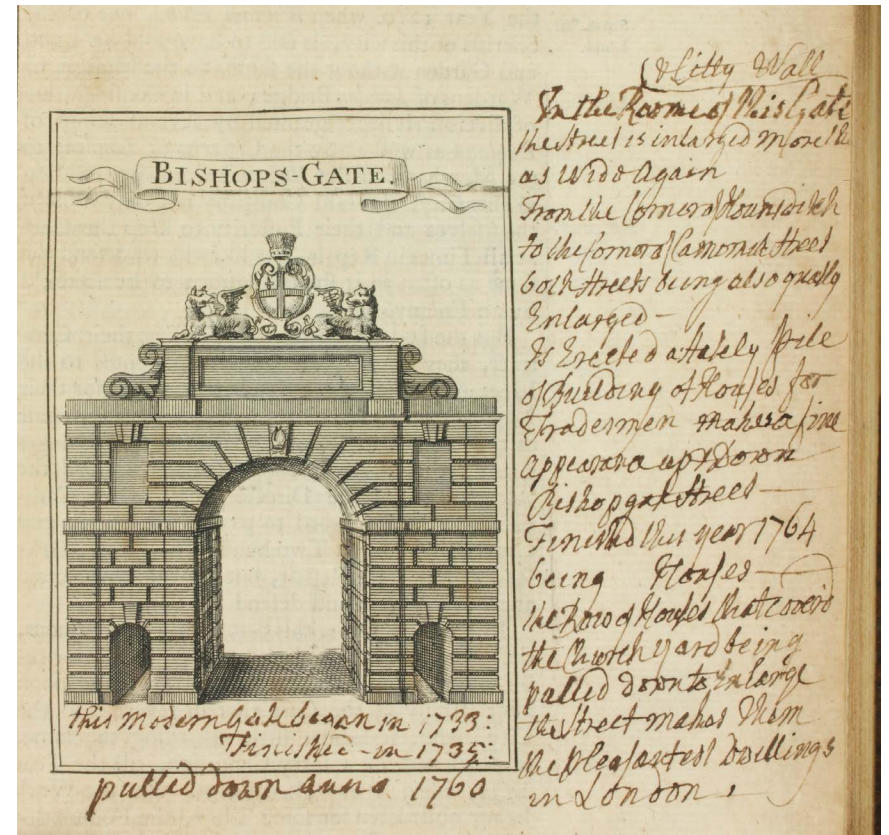 BISHOPS-GATE.
this modern Gate began in 1733:
Finished - in 1735:
pulled down anno 1760
(& Citty Wall
In the Roome of this Gate
the Street is inlarged more th
as Wide Again
From the Corner of Houndsditch
to the Corner of Camomile Street
both Streets being also qually
Enlarged —
Is Erected a stately Pile
of Building of Houses for
Tradesmen makes a fine
appearance up & Down
Bishopgate Street —
Finished this year 1764
being Houses —
the Row of Houses that coverd
the Church yard being
pulled down to Enlarge
the Street makes them
the Pleasantest Dwellings
in London .